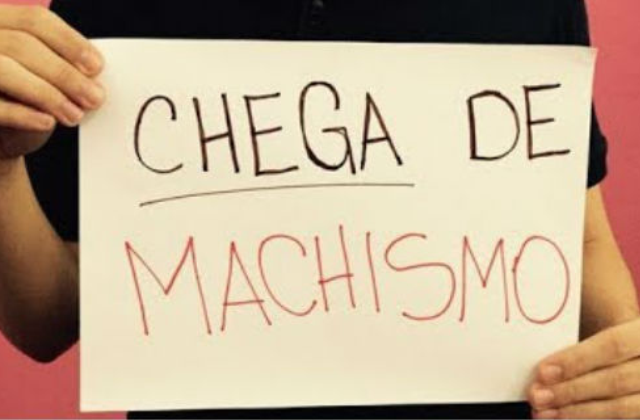 CHEGA DE
MACHISMO